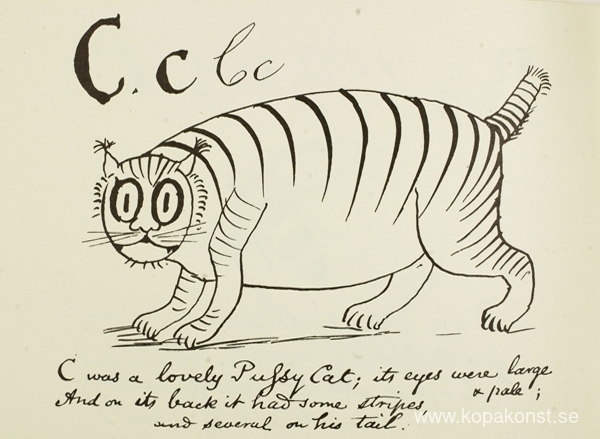 C. c C c
C was a lovely Pussy Cat; its eyes were large
& pale;
And on its back it had some stripes,
and several on his tail.
www.kopakonst.se